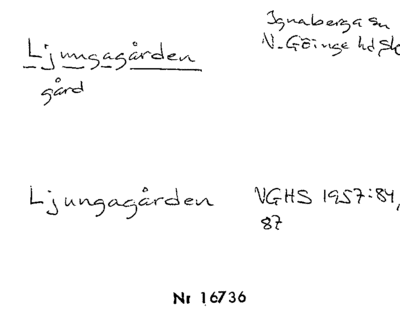 Ignaberga sn
Ljungagården
V. Göinge hd Sk
gård
Ljungagården VGHS 1957:84,
87
Nr 16736